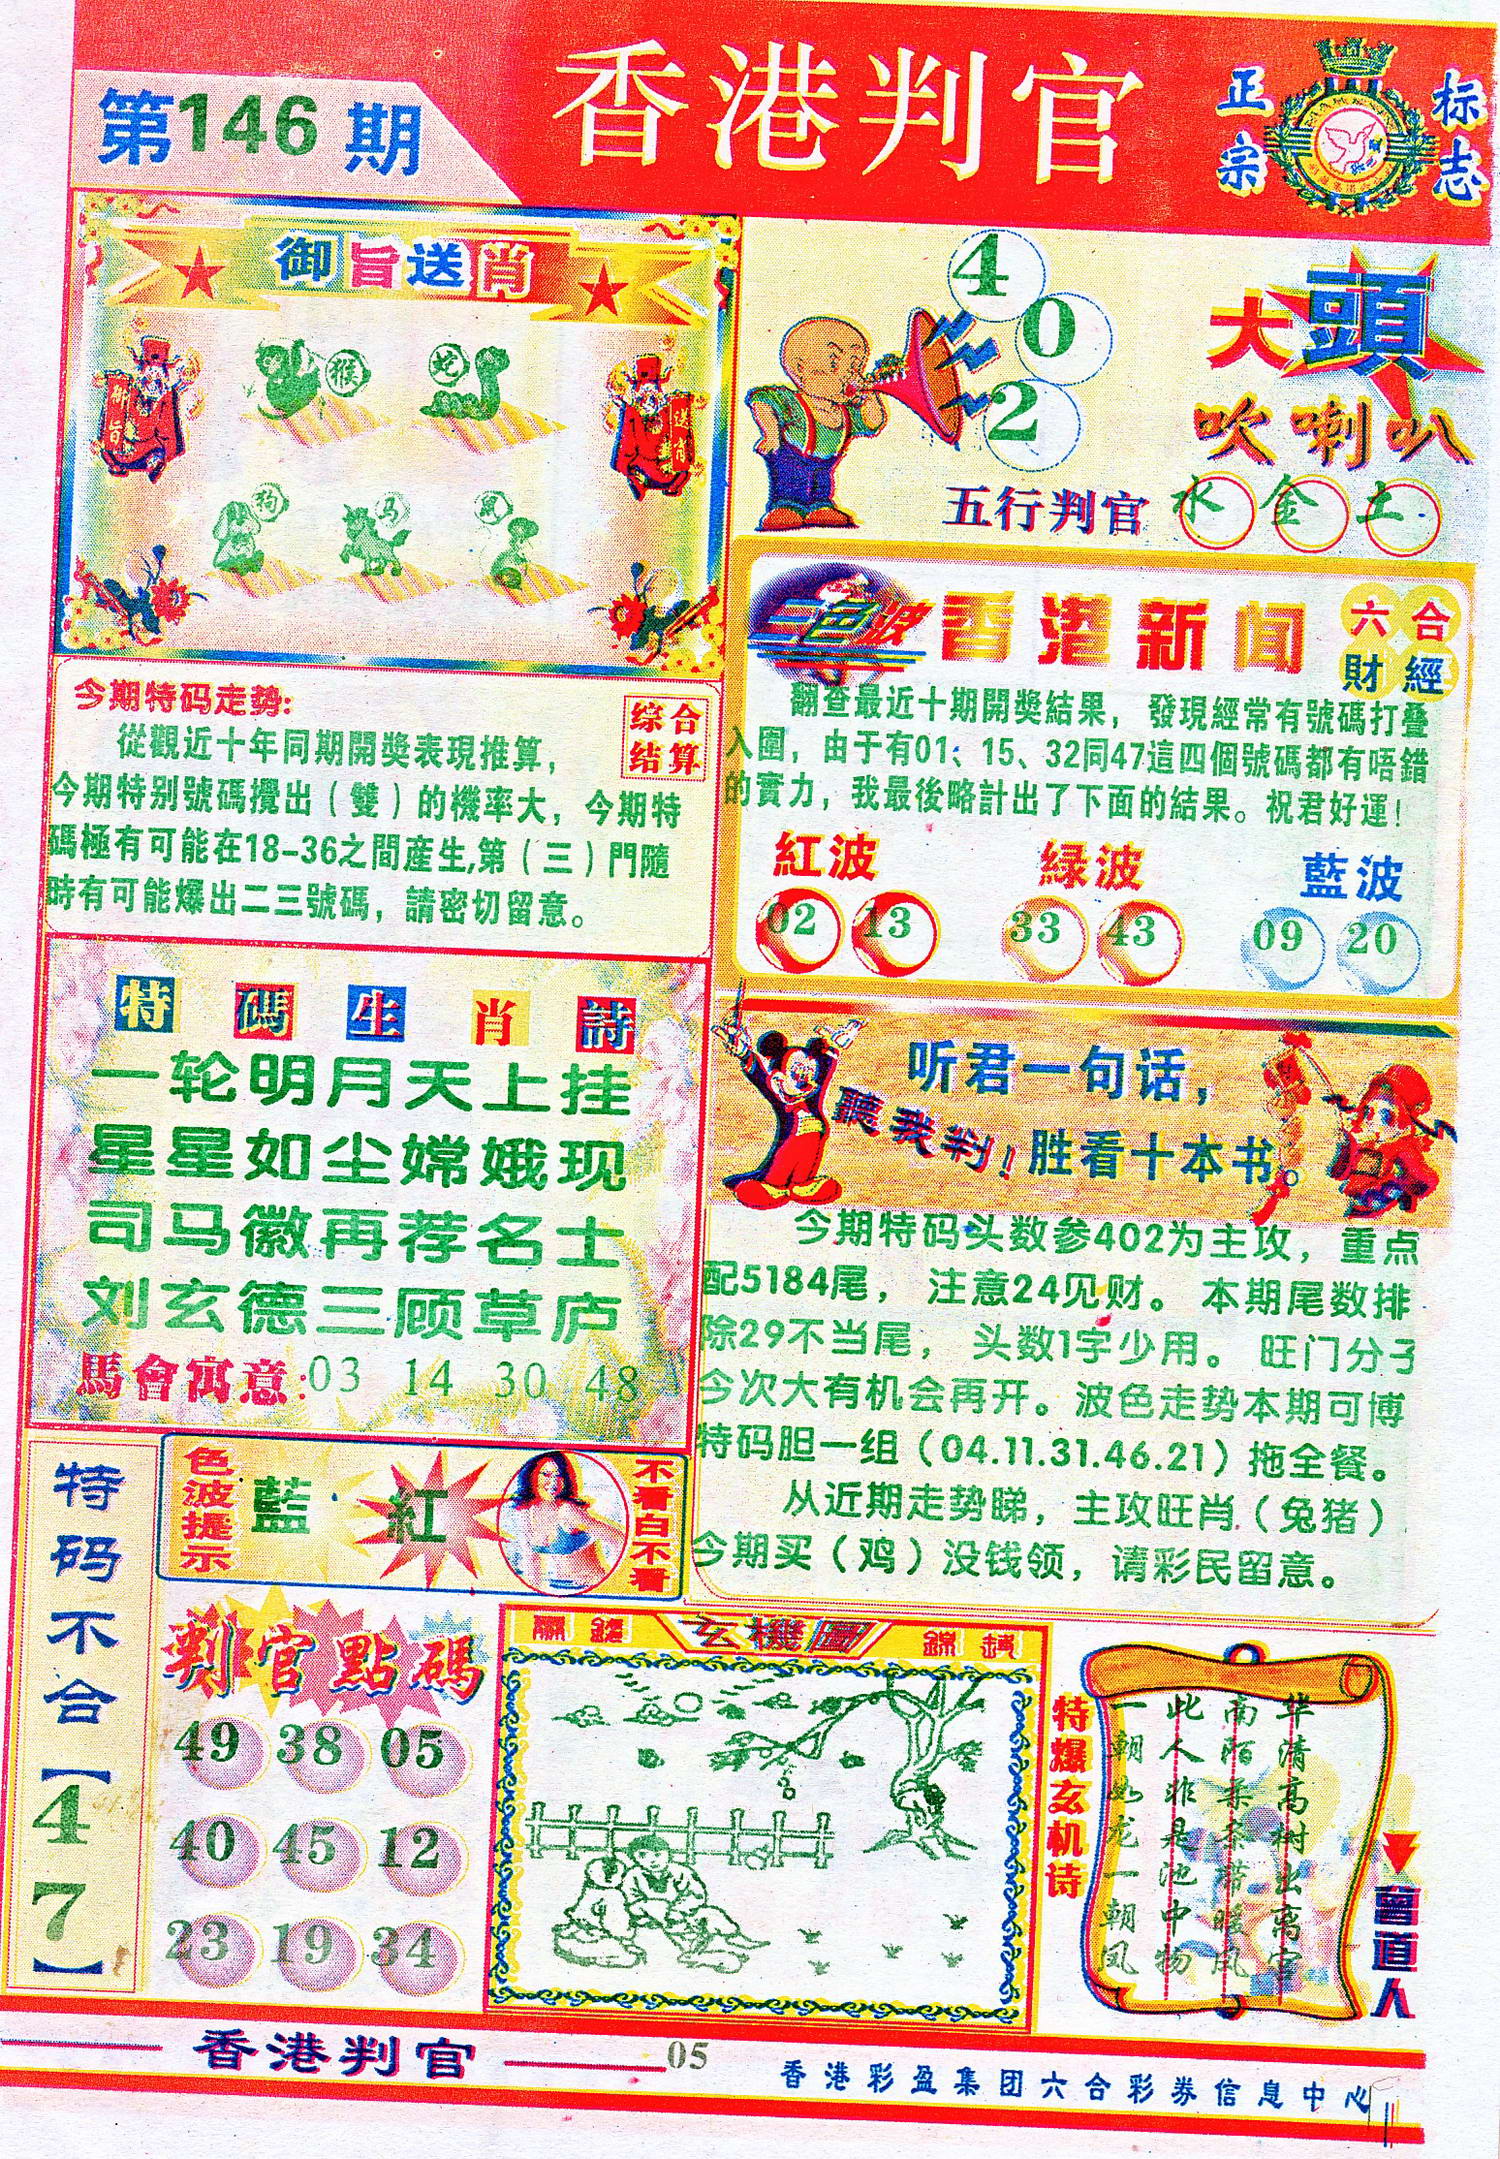 第146期
香港判官
正宗
标志
御旨送肖
猴
蛇
御旨
送肖
狗
马
鼠
4
0
2
大頭
吹喇叭
五行判官 水 金 土
今期特码走势:
综合
结算
從觀近十年同期開獎表現推算,
今期特别號碼攪出(雙)的機率大,今期特
碼極有可能在18-36之間產生,第(三)門隨
時有可能爆出二三號碼,請密切留意。
三色波
香港新闻
六合
財經
翻查最近十期開獎結果,發現經常有號碼打叠
入圍,由于有01、15、32同47這四個號碼都有唔錯
的實力,我最後略計出了下面的結果。祝君好運!
紅波 緑波 藍波
02 13 33 43 09 20
特碼生肖詩
一轮明月天上挂
星星如尘嫦娥现
司马徽再荐名士
刘玄德三顾草庐
馬會寓意:03 14 30 48
聽我判!
听君一句话,
胜看十本书。
今期特码头数参402为主攻,重点
配5184尾,注意24见财。本期尾数排
除29不当尾,头数1字少用。旺门分子
今次大有机会再开。波色走势本期可博
特码胆一组(04.11.31.46.21)拖全餐。
从近期走势睇,主攻旺肖(兔猪)
今期买(鸡)没钱领,请彩民留意。
特码不合【47】
色波提示
藍 紅
不看白不看
判官點碼
49 38 05
40 45 12
23 19 34
玄機圖
特爆玄机诗
华清高树出离宫
南陌柔条带暖风
此人非是池中物
一朝如龙一朝凤
曾道人
香港判官
05
香港彩盈集团六合彩券信息中心